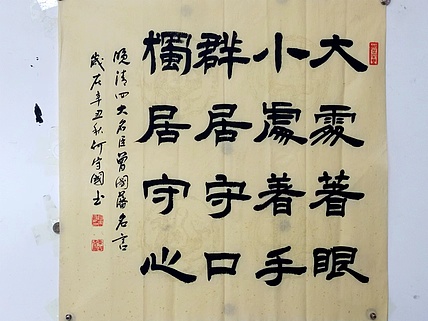 大處著眼
小處著手
群居守口
獨居守心
晚清四大名臣曾國藩名言
歲在辛丑秋何守國书